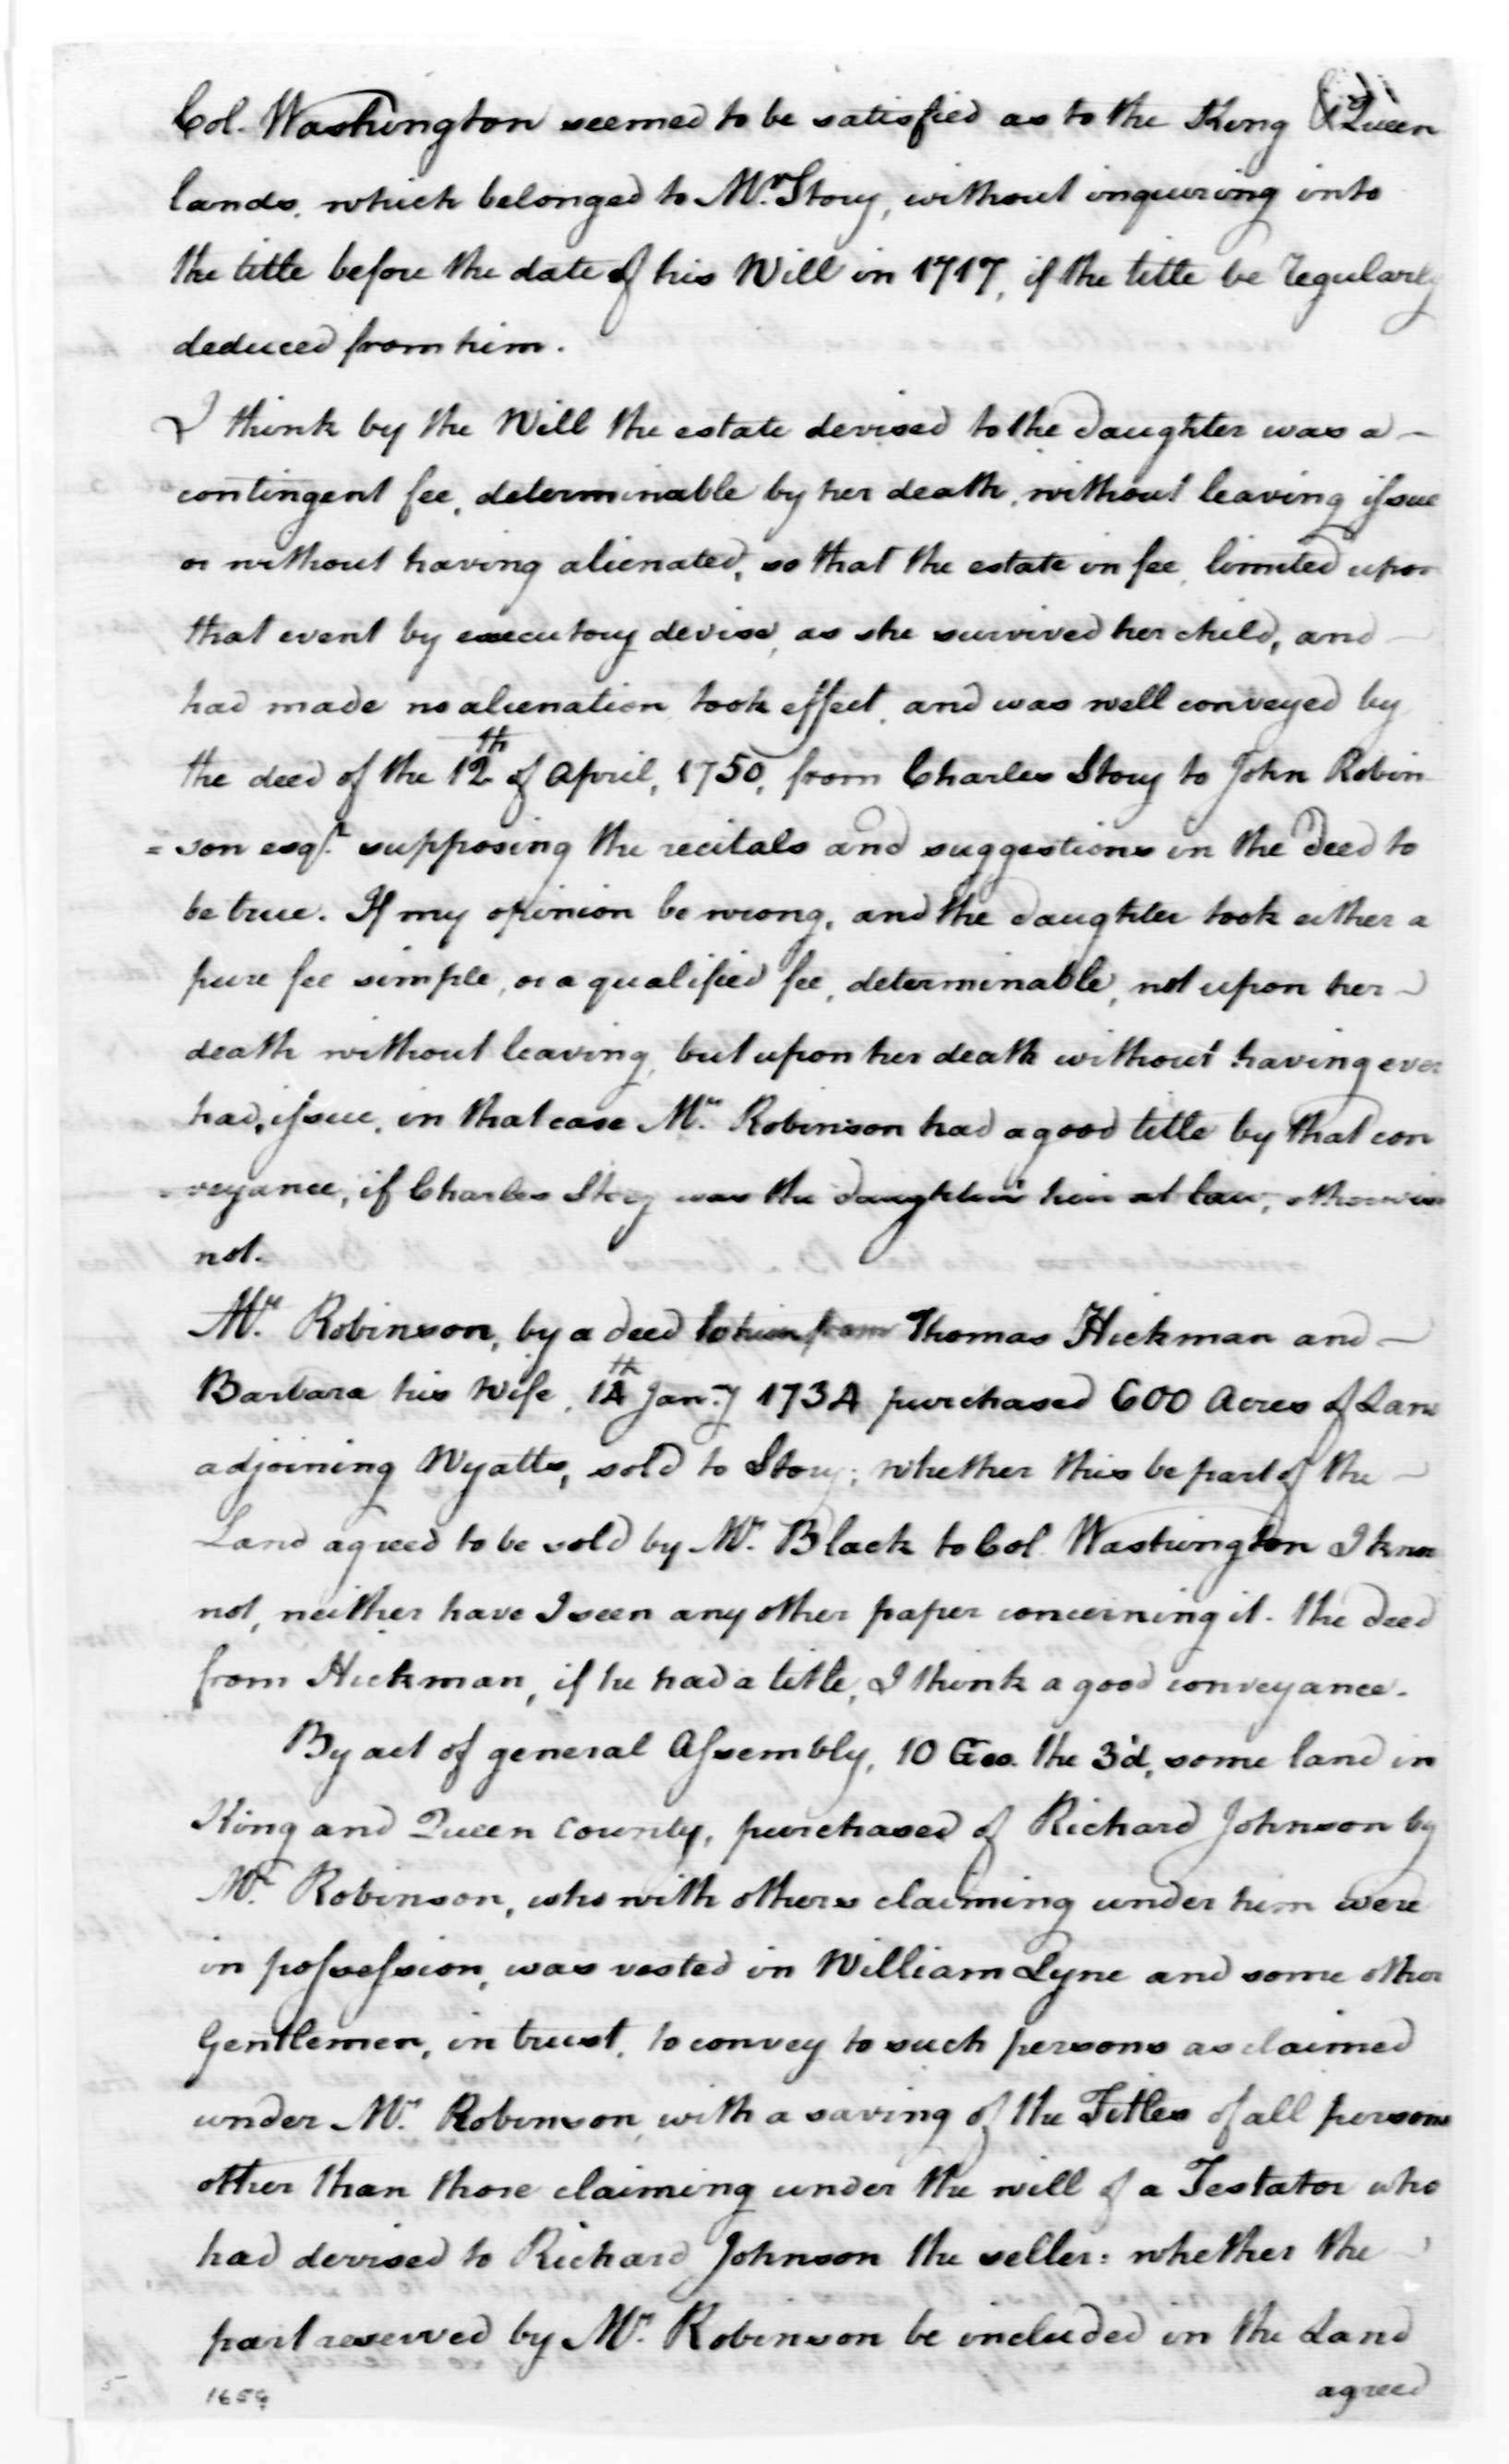 Col. Washington seemed to be satisfied as to the King & Queen
lands, which belonged to Mr. Story, without inquiring into
the title before the date of his Will in 1717, if the title be regularly
deduced from him.
I think by the Will the estate devised to the daughter was a
contingent fee, determinable by her death, without leaving issue
or without having alienated, so that the estate in fee, limited upon
that event by executory devise, as she survived her child, and
had made no alienation, took effect, and was well conveyed by
the deed of the 12th of April, 1750, from Charles Story to John Robin
=son esqr. supposing the recitals and suggestions in the deed to
be true. If my opinion be wrong, and the daughter took either a
pure fee simple, or a qualified fee, determinable, not upon her
death without leaving, but upon her death without having ever
had, issue, in that case Mr. Robinson had a good title by that con
=veyance, if Charles Story was the daughters heir at law, otherwise
not.
Mr. Robinson, by a deed to him from Thomas Hickman and
Barbara his Wife, 14th Jany 1734 purchased 600 Acres of Land
adjoining Wyatts, sold to Story; whether this be part of the
Land agreed to be sold by Mr. Black to Col. Washington I know
not, neither have I seen any other paper concerning it. the deed
from Hickman, if he had a title, I think a good conveyance.
By act of general Assembly, 10 Geo. the 3'd, some land in
King and Queen County, purchased of Richard Johnson by
Mr. Robinson, who with others claiming under him were
in possession, was vested in William Lyne and some other
Gentlemen, in trust, to convey to such persons as claimed
under Mr. Robinson, with a saving of the Titles of all persons
other than those claiming under the will of a Testator who
had devised to Richard Johnson the seller: whether the
part reserved by Mr. Robinson be included in the Land
agreed
1659